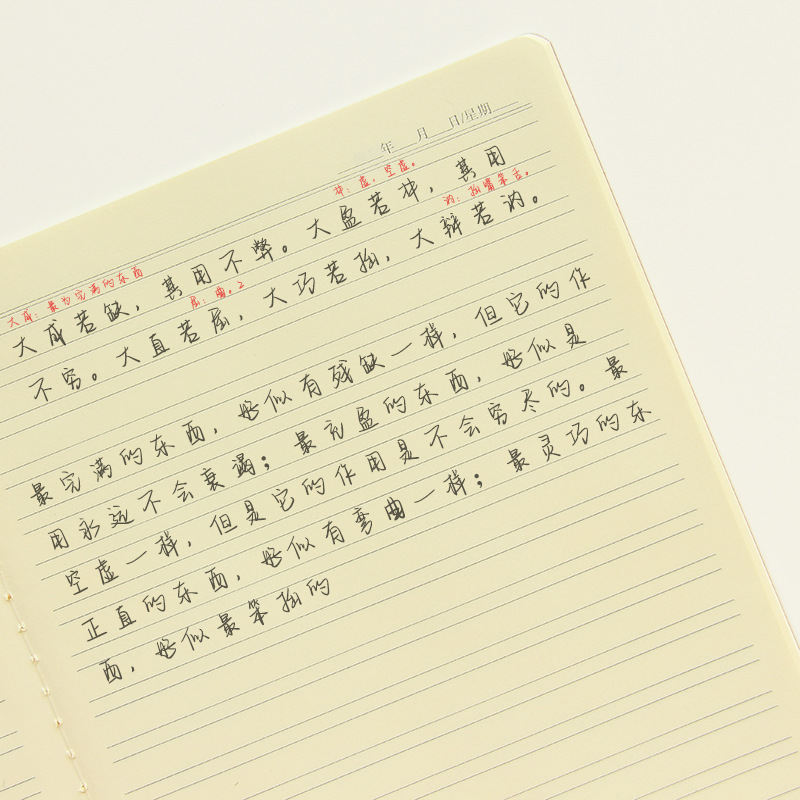 年 月 日/星期
冲：虚，空虚。
大成若缺，其用不弊。大盈若冲，其用
讷：拙嘴笨舌。
大成：最为完满的东西
屈：曲。2
不穷。大直若屈，大巧若拙，大辩若讷。
最完满的东西，好似有残缺一样，但它的作
用永远不会衰竭；最充盈的东西，好似是
空虚一样，但是它的作用是不会穷尽的。最
正直的东西，好似有弯曲一样；最灵巧的东
西，好似最笨拙的